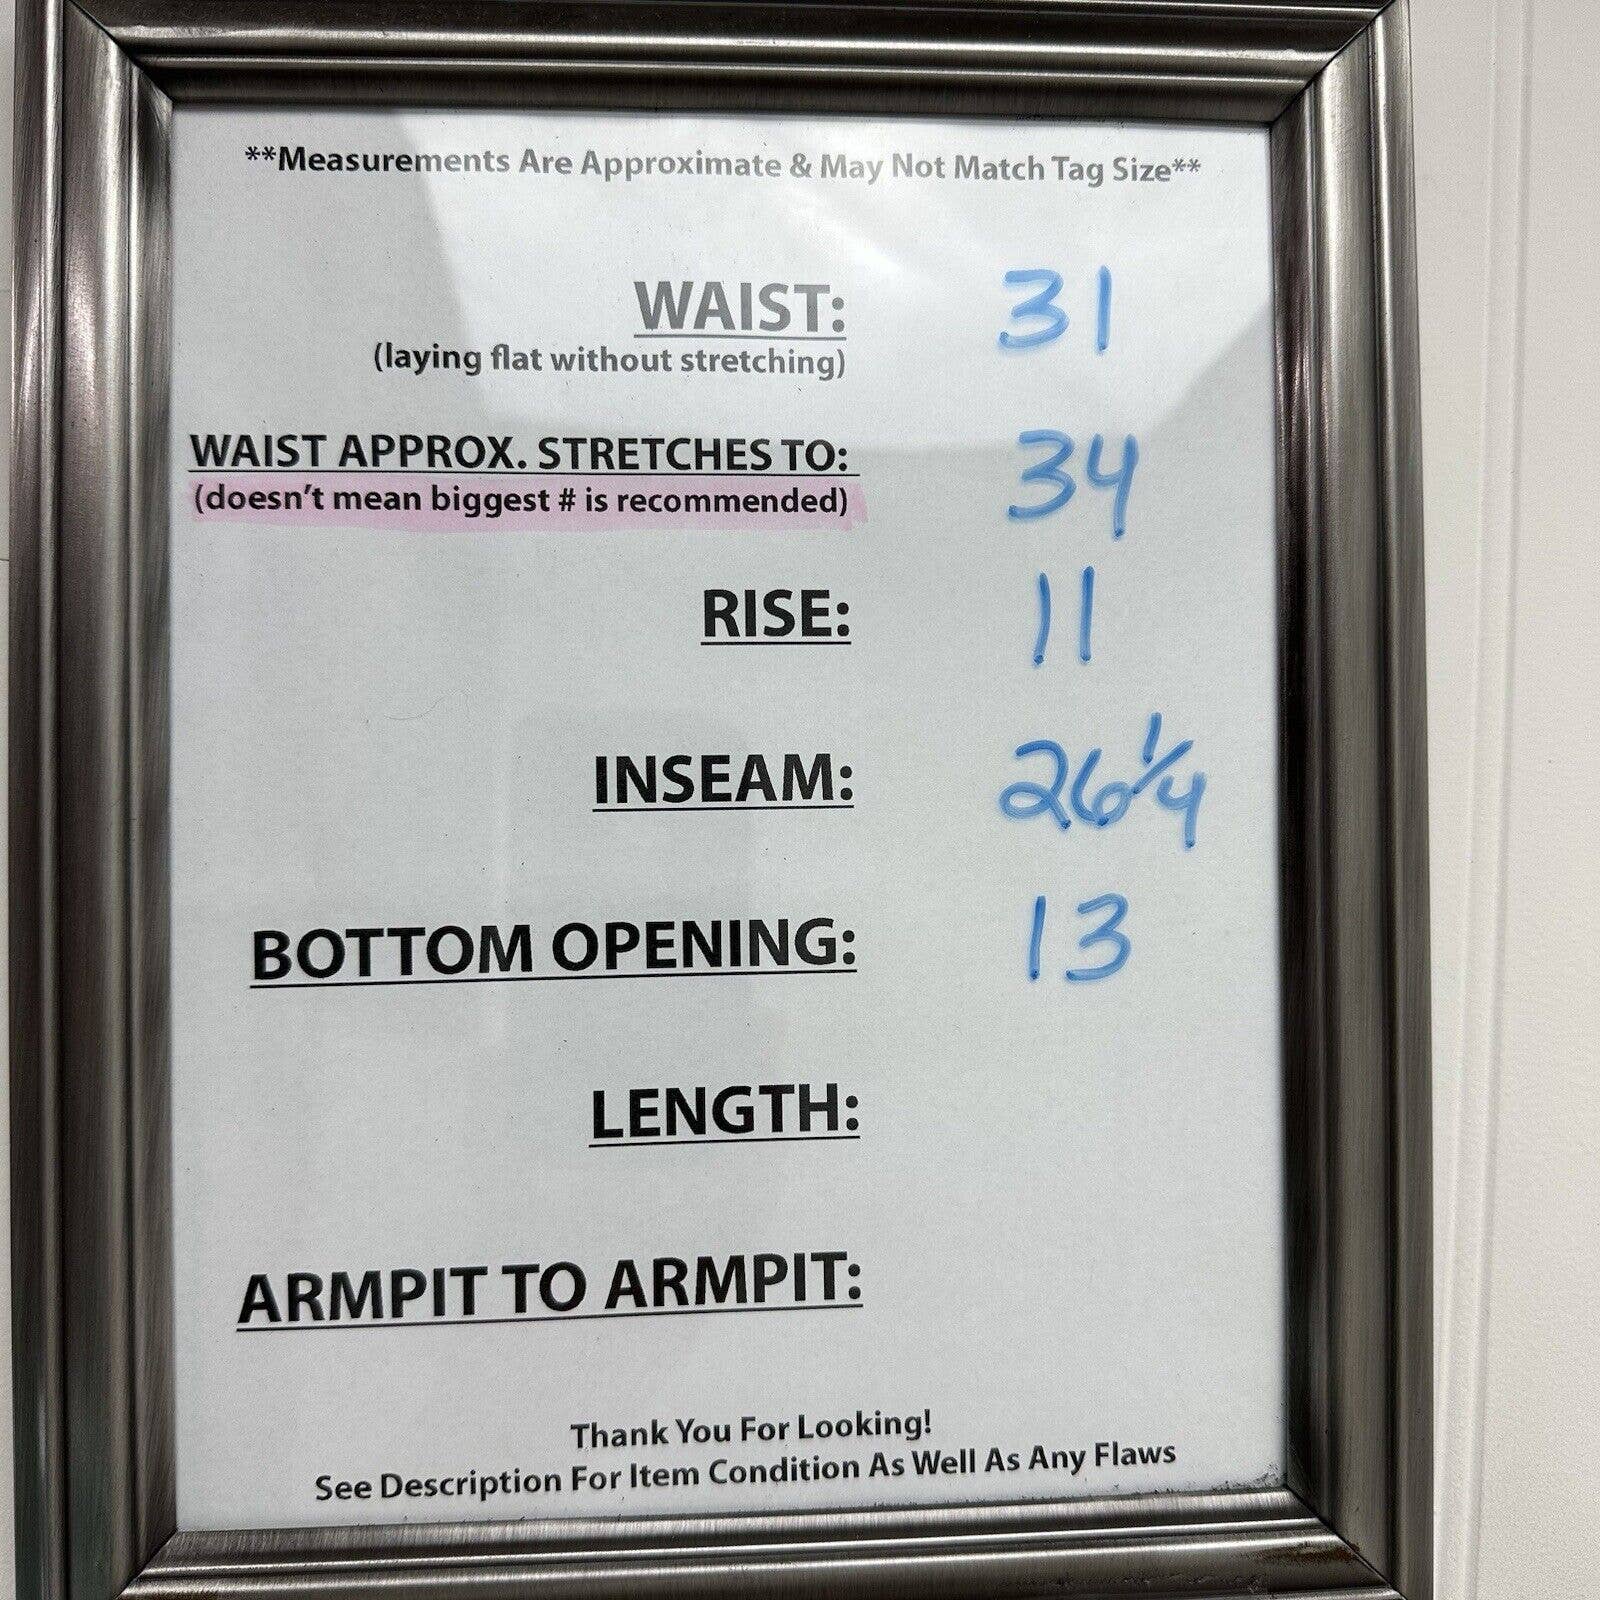 **Measurements Are Approximate & May Not Match Tag Size**
WAIST: 31
(laying flat without stretching)
WAIST APPROX. STRETCHES TO: 34
(doesn't mean biggest # is recommended)
RISE: 11
INSEAM: 26 1/4
BOTTOM OPENING: 13
LENGTH:
ARMPIT TO ARMPIT:
Thank You For Looking!
See Description For Item Condition As Well As Any Flaws